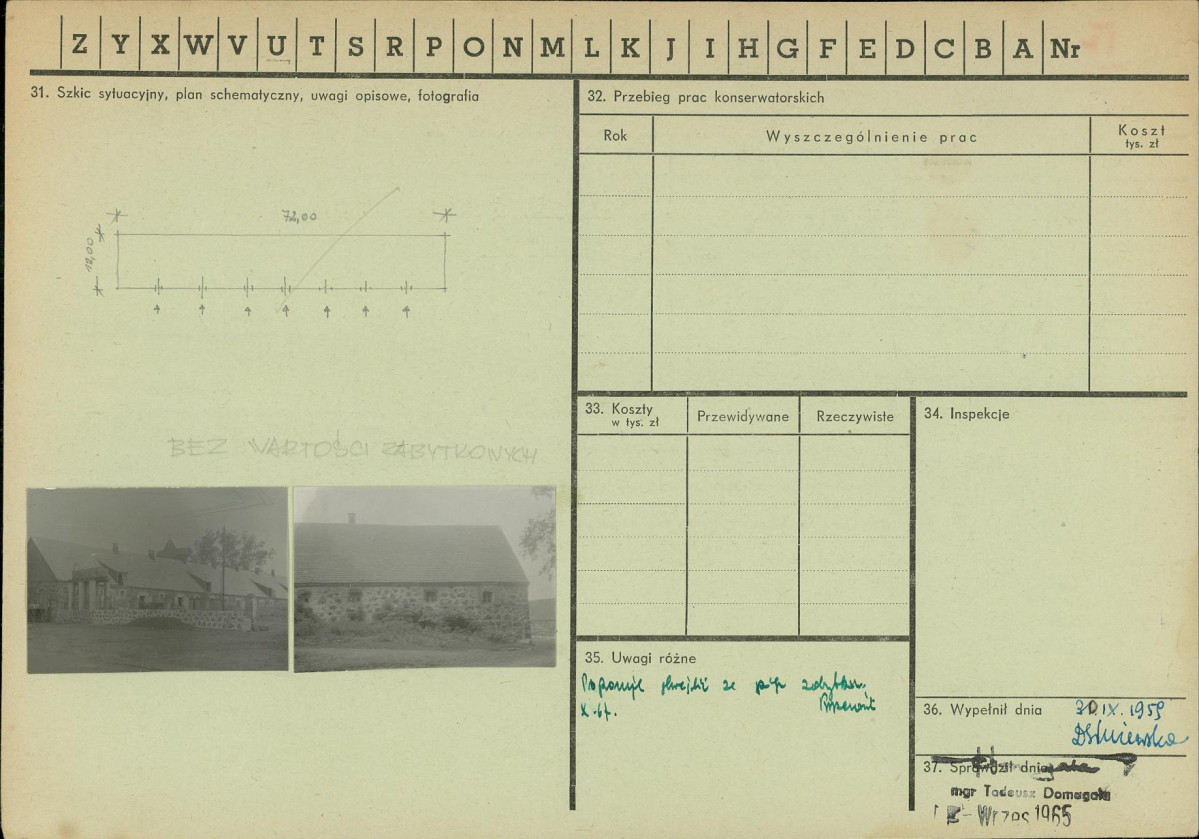 Z Y X W V U T S R P O N M L K J I H G F E D C B A Nr
31. Szkic sytuacyjny, plan schematyczny, uwagi opisowe, fotografia
72,00
12,00
BEZ WARTOŚCI ZABYTKOWYCH
32. Przebieg prac konserwatorskich
Rok
Wyszczególnienie prac
Koszt
tys. zł
33. Koszty
w tys. zł
Przewidywane
Rzeczywiste
34. Inspekcje
35. Uwagi różne
X.67.
36. Wypełnił dnia
30.IX.1959
37. Sprawdził dnia
mgr Tadeusz Domagała
1965